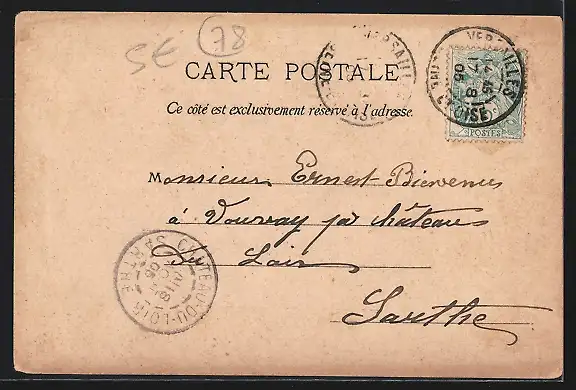 SE 78
CARTE POSTALE
Ce côté est exclusivement réservé à l'adresse.
VERSAILLES
SEINE ET OISE
POSTES
Monsieur Ernest Bienvenu
à Vouvray par château
Du Loir
Sarthe
CHATEAU-DU-LOIR
SARTHE